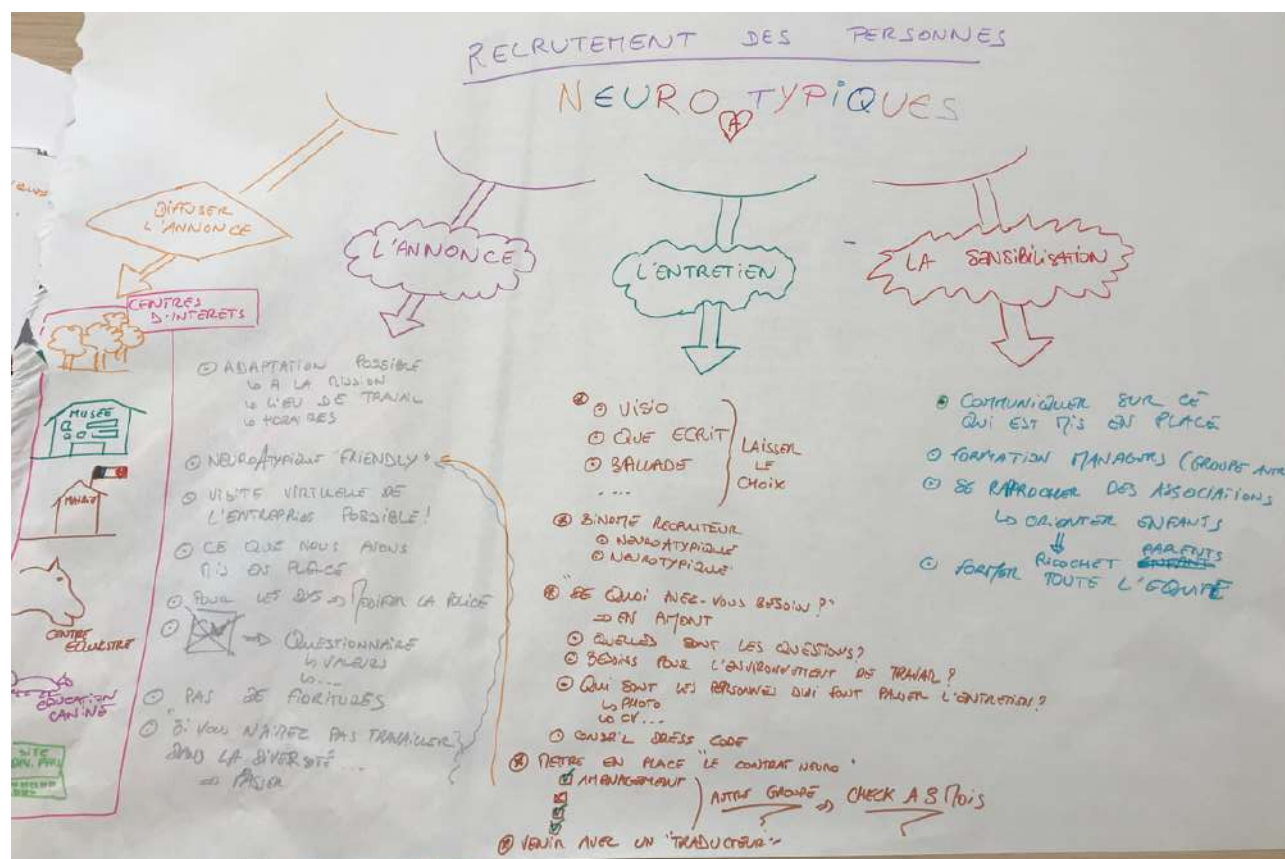 RECRUTEMENT DES PERSONNES
NEURO A TYPIQUES
DIFFUSER
L'ANNONCE
CENTRES
D'INTERETS
MUSEE
CENTRE
EQUESTRE
EDUCATION
CANINE
SITE
L'ANNONCE
ADAPTATION POSSIBLE
↳ A LA MISSION
↳ LIEU DE TRAVAIL
↳ HORAIRES
NEUROATYPIQUE "FRIENDLY"
VISITE VIRTUELLE DE
L'ENTREPRISE POSSIBLE!
CE QUE NOUS AVONS
MIS EN PLACE
POUR LES DYS => MODIFIER LA POLICE
CV => QUESTIONNAIRE
↳ VALEURS
↳ ...
PAS DE FIORITURES
"SI VOUS N'AIMEZ PAS TRAVAILLER
DANS LA DIVERSITÉ...
=> PASSER
L'ENTRETIEN
VISIO
QUE ECRIT
BALLADE
....
LAISSER
LE
CHOIX
BINOME RECRUTEUR
NEUROATYPIQUE
NEUROTYPIQUE
"DE QUOI AVEZ-VOUS BESOIN?"
=> EN AMONT
QUELLES SONT LES QUESTIONS?
BESOINS POUR L'ENVIRONNEMENT DE TRAVAIL?
QUI SONT LES PERSONNES QUI FONT PASSER L'ENTRETIEN?
↳ PHOTO
↳ CV...
CONSEIL DRESS CODE
METTRE EN PLACE "LE CONTRAT NEURO"
AMENAGEMENT
AUTRE GROUPE => CHECK A 3 MOIS
VENIR AVEC UN "TRADUCTEUR"
LA SENSIBILISATION
COMMUNIQUER SUR CE
QUI EST MIS EN PLACE
FORMATION MANAGERS (GROUPE
SE RAPROCHER DES ASSOCIATIONS
↳ ORIENTER ENFANTS
RICOCHET PARENTS
FORMER TOUTE L'EQUIPE